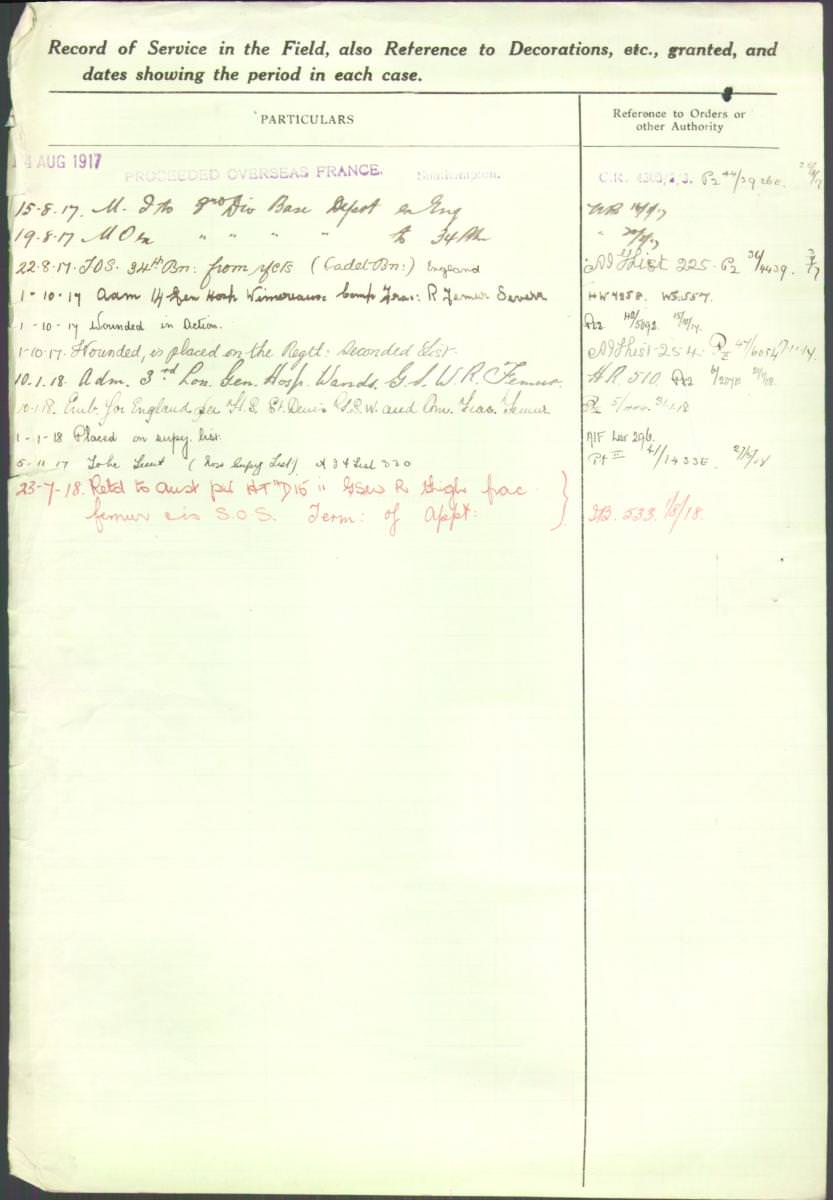 Record of Service in the Field, also Reference to Decorations, etc., granted, and
dates showing the period in each case.
PARTICULARS
Reference to Orders or
other Authority
AUG 1917 PROCEEDED OVERSEAS FRANCE. Southampton. C.R. P2
15-8-17. M. I to 3rd Div Base Depot ex Eng
19.8.17 M Out " " " " to 34 Bn
22.8.17. T.O.S. 34th Bn: from rfcts (Cadet Bn:) England AIF List 225. P2 34/4439.
1-10-17 Adm 14 Gen Hosp Wimereaux Comp Frac: R Femur Severe HW4258. W5557.
1-10-17 Wounded in Action. Pt2 40/5092
1-10-17. Wounded, is placed on the Regtl: Seconded List. AIF List 254. 47/6054
10.1.18. Adm. 3rd Lon. Gen. Hosp. Wands. G.S.W. R. Femur. HR. 510
10.1.18. Emb. for England per H.S. St Denis G.S.W. and Com. Frac. Femur
1-1-18 Placed on supy. list. AIF List 296.
5-11-17 To be Lieut (Supy List) A 34 List 330 Pt II
23-7-18. Retd to Aust per HT "D15" GSW R thigh frac
femur & is S.O.S. Term: of Appt: 533. 1/8/18.